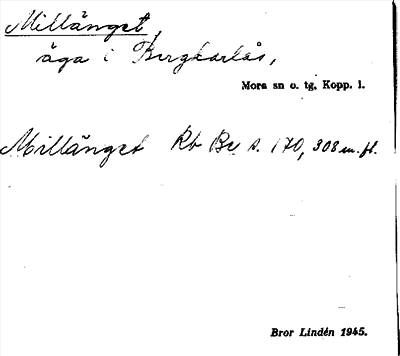 Millänget,
äga i Bergkarlås,
Mora sn o. tg, Kopp. l.
Millänget Rb Be s. 170, 308 m. fl.
Bror Lindén 1945.